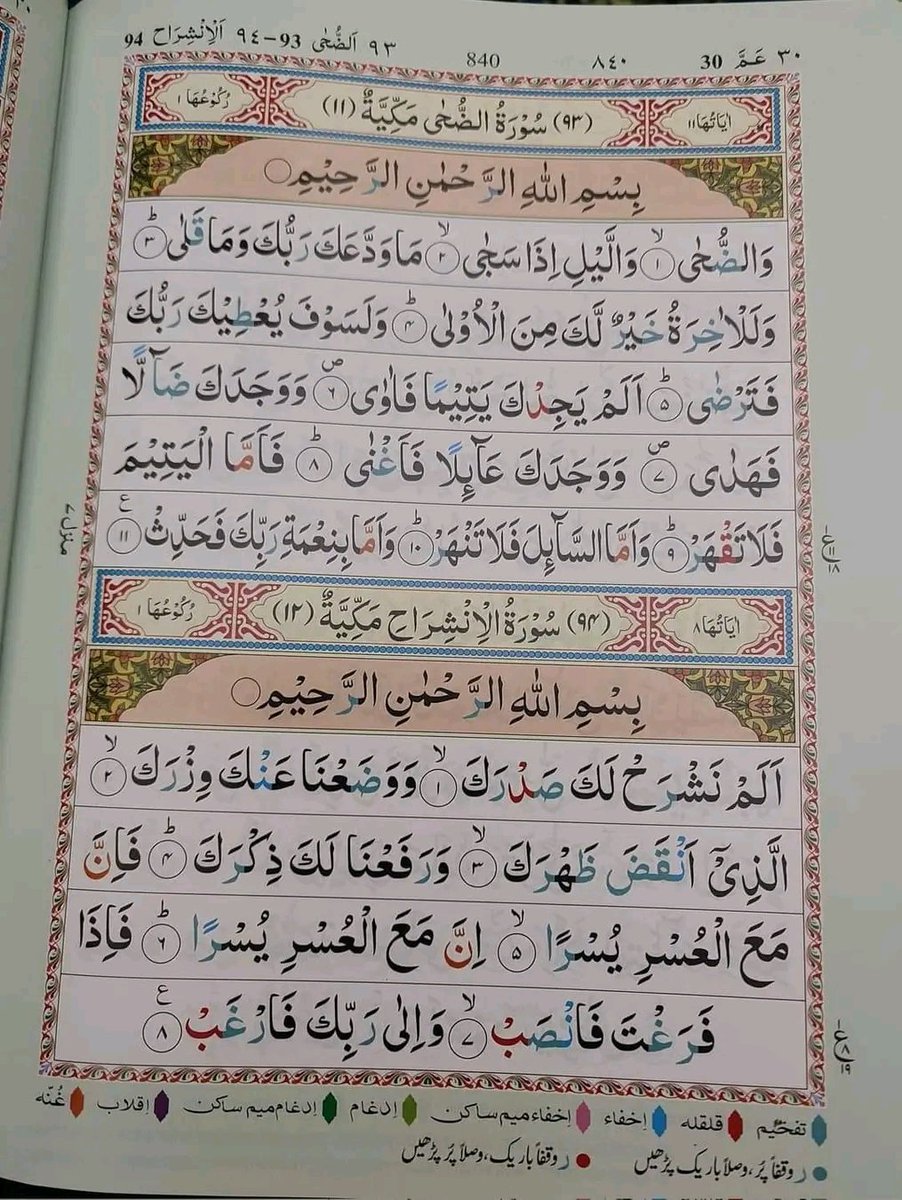 ٣٠ عَمَّ 30 ٨٤٠ 840 ٩٣ اَلضُّحٰى 93-٩٤ اَلْاِنْشِرَاح 94
اٰيَاتُهَا ١١ (٩٣) سُوْرَةُ الضُّحٰى مَكِّيَّةٌ (١١) رُكُوْعُهَا ١
بِسْمِ اللهِ الرَّحْمٰنِ الرَّحِيْمِ
وَالضُّحٰى ۙ ١ وَالَّيْلِ اِذَا سَجٰى ۙ ٢ مَا وَدَّعَكَ رَبُّكَ وَمَا قَلٰى ؕ ٣
وَلَلْاٰخِرَةُ خَيْرٌ لَّكَ مِنَ الْاُوْلٰى ؕ ٤ وَلَسَوْفَ يُعْطِيْكَ رَبُّكَ
فَتَرْضٰى ؕ ٥ اَلَمْ يَجِدْكَ يَتِيْمًا فَاٰوٰى ۪ ٦ وَوَجَدَكَ ضَآلًّا
فَهَدٰى ۪ ٧ وَوَجَدَكَ عَآئِلًا فَاَغْنٰى ؕ ٨ فَاَمَّا الْيَتِيْمَ
فَلَا تَقْهَرْ ؕ ٩ وَاَمَّا السَّآئِلَ فَلَا تَنْهَرْ ؕ ١٠ وَاَمَّا بِنِعْمَةِ رَبِّكَ فَحَدِّثْ ١١ ع
منزل ٧
ع ١١ ١٨
اٰيَاتُهَا ٨ (٩٤) سُوْرَةُ الْاِنْشِرَاحِ مَكِّيَّةٌ (١٢) رُكُوْعُهَا ١
بِسْمِ اللهِ الرَّحْمٰنِ الرَّحِيْمِ
اَلَمْ نَشْرَحْ لَكَ صَدْرَكَ ۙ ١ وَوَضَعْنَا عَنْكَ وِزْرَكَ ۙ ٢
الَّذِيْٓ اَنْقَضَ ظَهْرَكَ ۙ ٣ وَرَفَعْنَا لَكَ ذِكْرَكَ ؕ ٤ فَاِنَّ
مَعَ الْعُسْرِ يُسْرًا ۙ ٥ اِنَّ مَعَ الْعُسْرِ يُسْرًا ؕ ٦ فَاِذَا
فَرَغْتَ فَانْصَبْ ۙ ٧ وَاِلٰى رَبِّكَ فَارْغَبْ ٨ ع
ع ٨ ١٩
تفخيم قلقله إخفاء إخفاء ميم ساكن إدغام إدغام ميم ساكن إقلاب غُنّه
ر وقفاً پُر، وصلاً باریک پڑھیں ر وقفاً باریک، وصلاً پُر پڑھیں